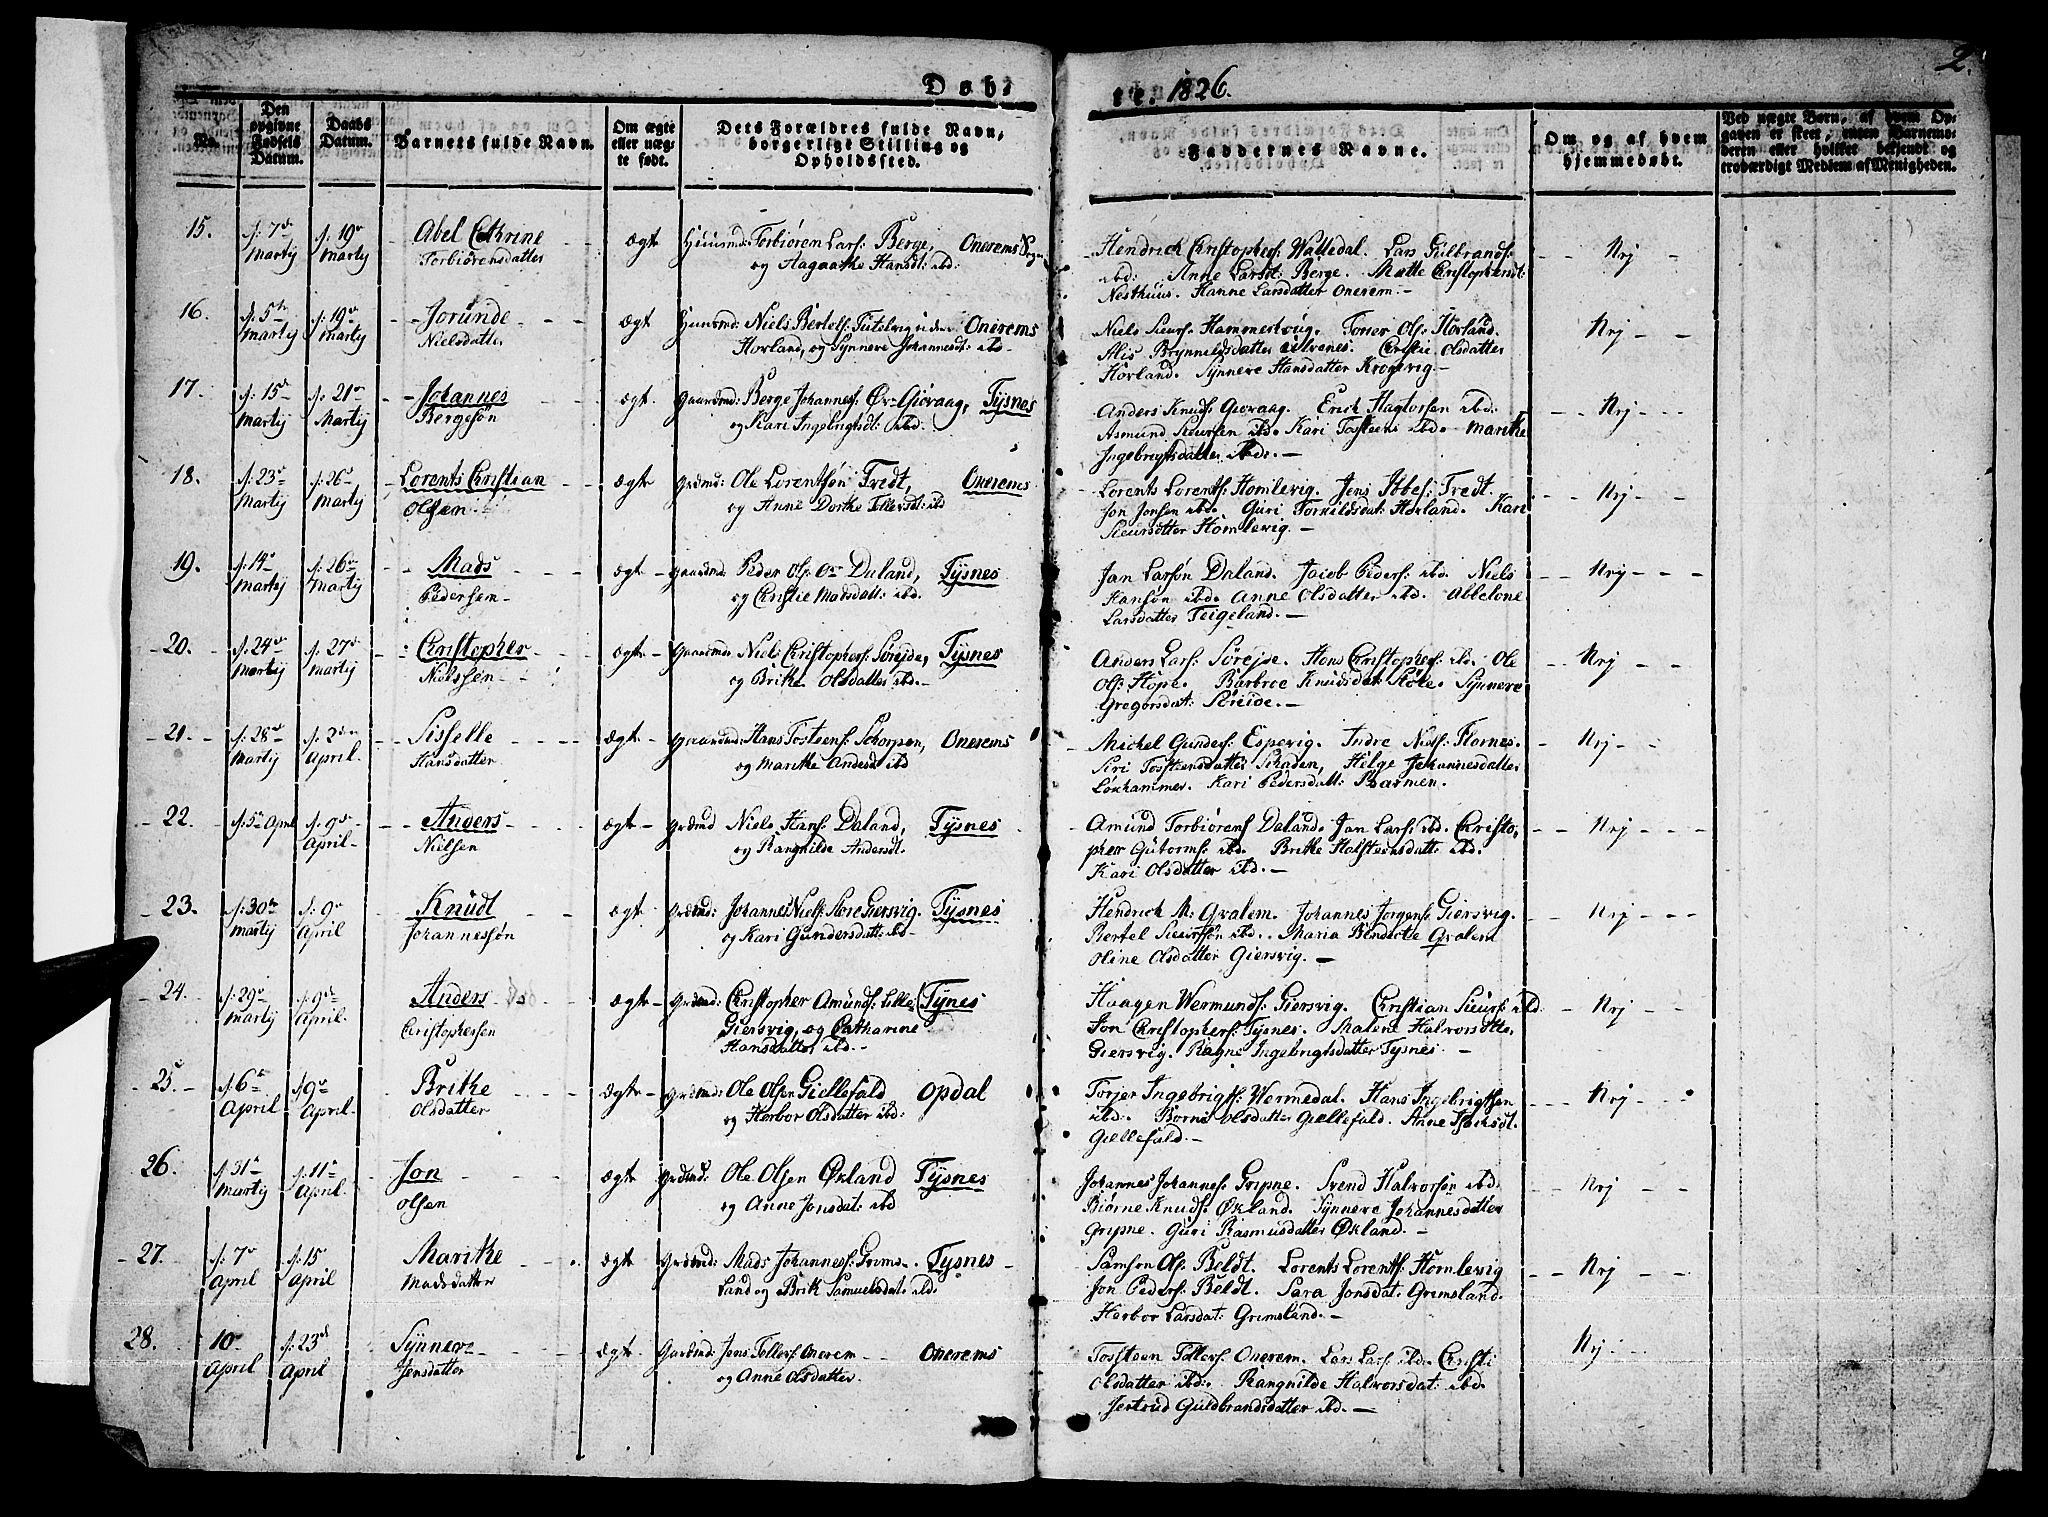 2.
Døbte. 1826.
No.
Den opgivne Fødsels Datum.
Daabs Datum.
Barnets fulde Navn.
Om ægte eller uægte født.
Dets Forældres fulde Navn, borgerlige Stilling og Opholdssted.
Faddernes Navne.
Om og af hvem hjemmedøbt.
Ved uægte Børn, af hvem Opgaven er skeet, enten Barnemoderen eller hvilket bekjendt og troværdigt Medlem af Menigheden.
15. d: 7de Martij d: 19de Martij Abel Cathrine Torbiörensdatter ægt Huusmd: Torbiören Lars: Berge, Onerems Sogn
og Aagaathe Hansdt: ibd:
Hendrich Christophers: Walledal. Lars Gulbrands:
ibd: Anne Larsdt: Berge. Mætte Christophersdt:
Nesthuus. Hanne Larsdatter Onerem.
Nej
16. d: 5te Martij d: 19de Martij Jorunde Nielsdatter ægt Huusmd: Niels Bertels: under Onerems
Horland, og Synneve Johannesdt: ibd
Niels Siurs: Hammerhoug. Torier Ols: Horland.
Alis Brynnildsdatter Christie Olsdatter
Horland. Synneve Hansdatter Kromvig.
Nej
17. d: 15de Martij d: 21de Martij Johannes Bergesön ægt Gaardmd: Berge Johannes: Øv: Giøvaag, Tysnes
og Kari Ingebrigtsdt: ibd.
Anders Knuds: Giøvaag. Erich Hagtorsen ibd.
Asmund Siursen ibd. Kari Tosteens ibd. Marithe
Ingebrigtsdatter ibd.
Nej
18. d: 23de Martij d: 26de Martij Lorents Christian Olsen ægt Grdmd: Ole Lorentsön Tredt, Onerems
og Anne Dorthe Tollersdt: ibd
Lorents Lorents: Homlevig. Jens Tredt.
Jon Jonsen ibd. Guri Tornildsdat: Horland. Kari
Siursdtter Homlevig.
Nej
19. d: 14de Martij d: 26de Martij Mads Pedersen ægt Gaardmd: Peder Ols: Øv: Daland, Tysnes
og Christie Madsdatt: ibd.
Jan Larsön Daland. Jacob Peders: ibd. Niels
Hansön ibd. Anne Olsdatter ibd. Abbelone
Larsdatter Teigeland.
Nej
20. d: 24de Martij d: 27de Martij Christopher Nielssen ægt Gaardmd: Niels Christophers: Sörejde, Tysnes
og Brithe Olsdatter ibd.
Anders Lars: Sörejde. Hans Christophers: ibd. Ole
Ols: Hope. Barbroe Knudsdat: Hope. Synneve
Gregorsdat: Söreide.
Nej
21. d: 28de Martij d: 2den April Sisselle Hansdatter ægt Gaardmd: Hans Tosteens: Skorpen, Onerems
og Marithe Andersdt ibd
Michel Gunders: Espevig. Indre Niels: Flornes.
Siri Tosteensdatter Skaden, Helge Johannesdatter
Loxhammer. Kari Pedersdatt: Barmen.
Nej
22. d: 5te April d: 9de April Anders Nielsen ægt Grdmd Niels Hans: Daland, Tysnes
og Rangnilde Andersdt.
Amund Torbiörens: Daland. Jan Lars: ibd. Christo,
pher Gutorms: ibd. Brithe Holsteensdatt: ibd.
Kari Olsdatter ibd.
Nej
23. d: 30te Martij d: 9de April Knudt Johannessön ægt Grdmd: Johannes Niels: Store Giersvig, Tysnes
og Kari Gundersdatt: ibd
Hendrich M: Gralem. Johannes Jorgens: Giersvig.
Bertel Siurssön ibd. Maria Bendicte Gralem
Oline Olsdatter Giersvig.
Nej
24. d: 29de Martij d: 9de April Anders Christophersen ægt Grdmd: Christopher Amunds: Lille Tysnes
Giersvig, og Catharine
Hansdatter ibd.
Haagen Wermunds: Giersvig. Christian Siurs: ibd
Jon Christophers: Tysnes. Malene Halvorsdtter
Giersvig. Ragne Ingebrigtsdatter Tysnes.
Nej
25. d: 6te April d: 9de April Brithe Olsdatter ægt Grdmd: Ole Olsen Giellefald Opdal
og Herbor Olsdatter ibd:
Torjer Ingebrigts: Wermedal. Hans Ingebrigtsen
ibd. Borni Olsdatter Giellefald. Anne Isachsdt.
Giellefald.
Nej
26. d: 31te Martij d: 11te April Jon Olsen ægt Grdmd: Ole Olsen Økland Tysnes
og Anne Jonsdat: ibd
Johannes Johannes: Gripne. Svend Halvorsön ibd.
Biørne Knuds: Økland. Synneve Johannesdatter
Gripne. Guri Rasmusdatter Økland.
Nej
27. d: 7de April d: 15 April Marithe Madsdatter ægt Grdmd: Mads Johannes: Grims- Tysnes
land og Brith Samuelsdat: ibd.
Samson Ols: Beldt. Lorents Lorents: Homlevig
Jon Peders: Beldt. Sara Jonsdat: Gremsland.
Herbor Larsdat: Grimsland.
Nej
28. 10de April d: 23de April Synneve Jensdatter ægt Gardmd: Jens Tollefs: Onerem Onerems
og Anne Olsdatter.
Tossteen Tollefs: Onerem. Lars Lars: ibd. Christi
Olsdatter ibd: Rangnilde Halvorsdat: ibd.
Jertrud Guldbrandsdatter ibd.
Nej